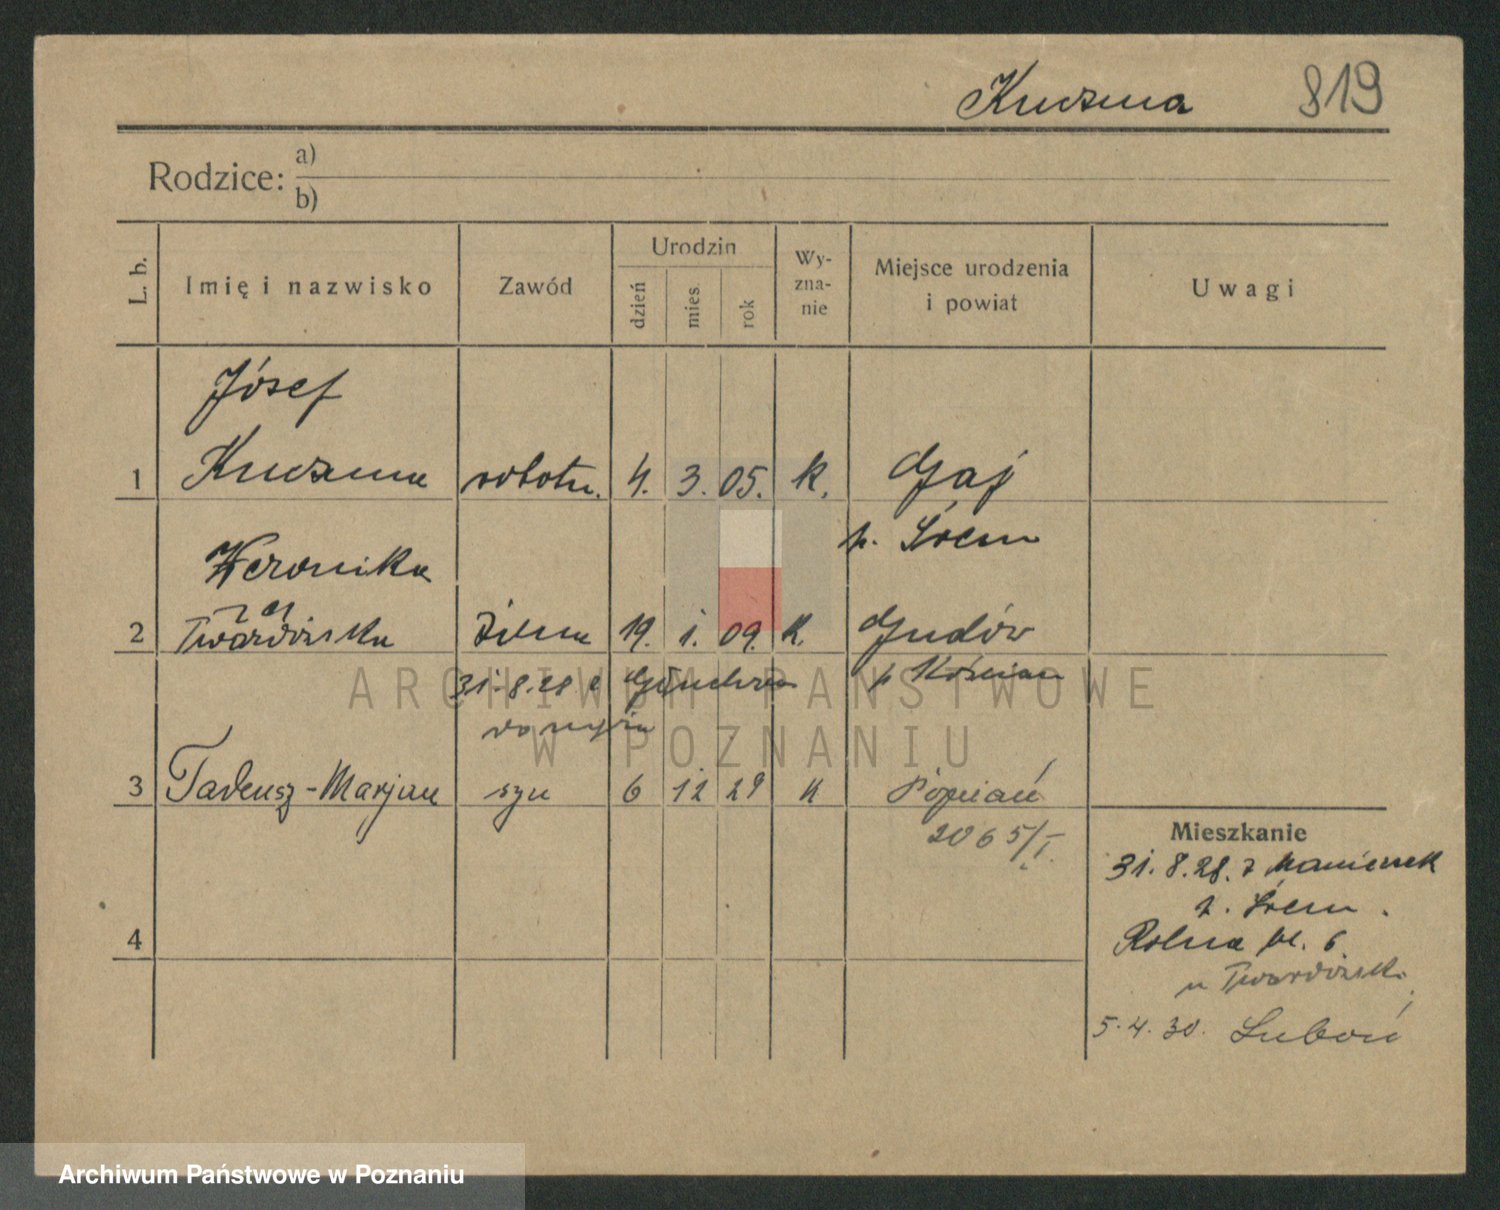 Kuczma 819
Rodzice: a)
b)
L. b.
Imię i nazwisko
Zawód
Urodzin
dzień
mies.
rok
Wy-
zna-
nie
Miejsce urodzenia
i powiat
Uwagi
Józef
1 Kuczma robotn. 4. 3. 05. k. Gaj
p. Śrem
Weronika
z d.
2 Twardowska żona 19. 1. 09. k.
31.8.28 z
p Kościan
3 Tadeusz-Marjan syn 6 12 29 k Poznań
2065/I.
4
Mieszkanie
31.8.28. z Manieczek
p. Śrem.
Rolna 6
u Twardowski.
5.4.30. Luboń
ARCHIWUM PAŃSTWOWE
W POZNANIU
Archiwum Państwowe w Poznaniu